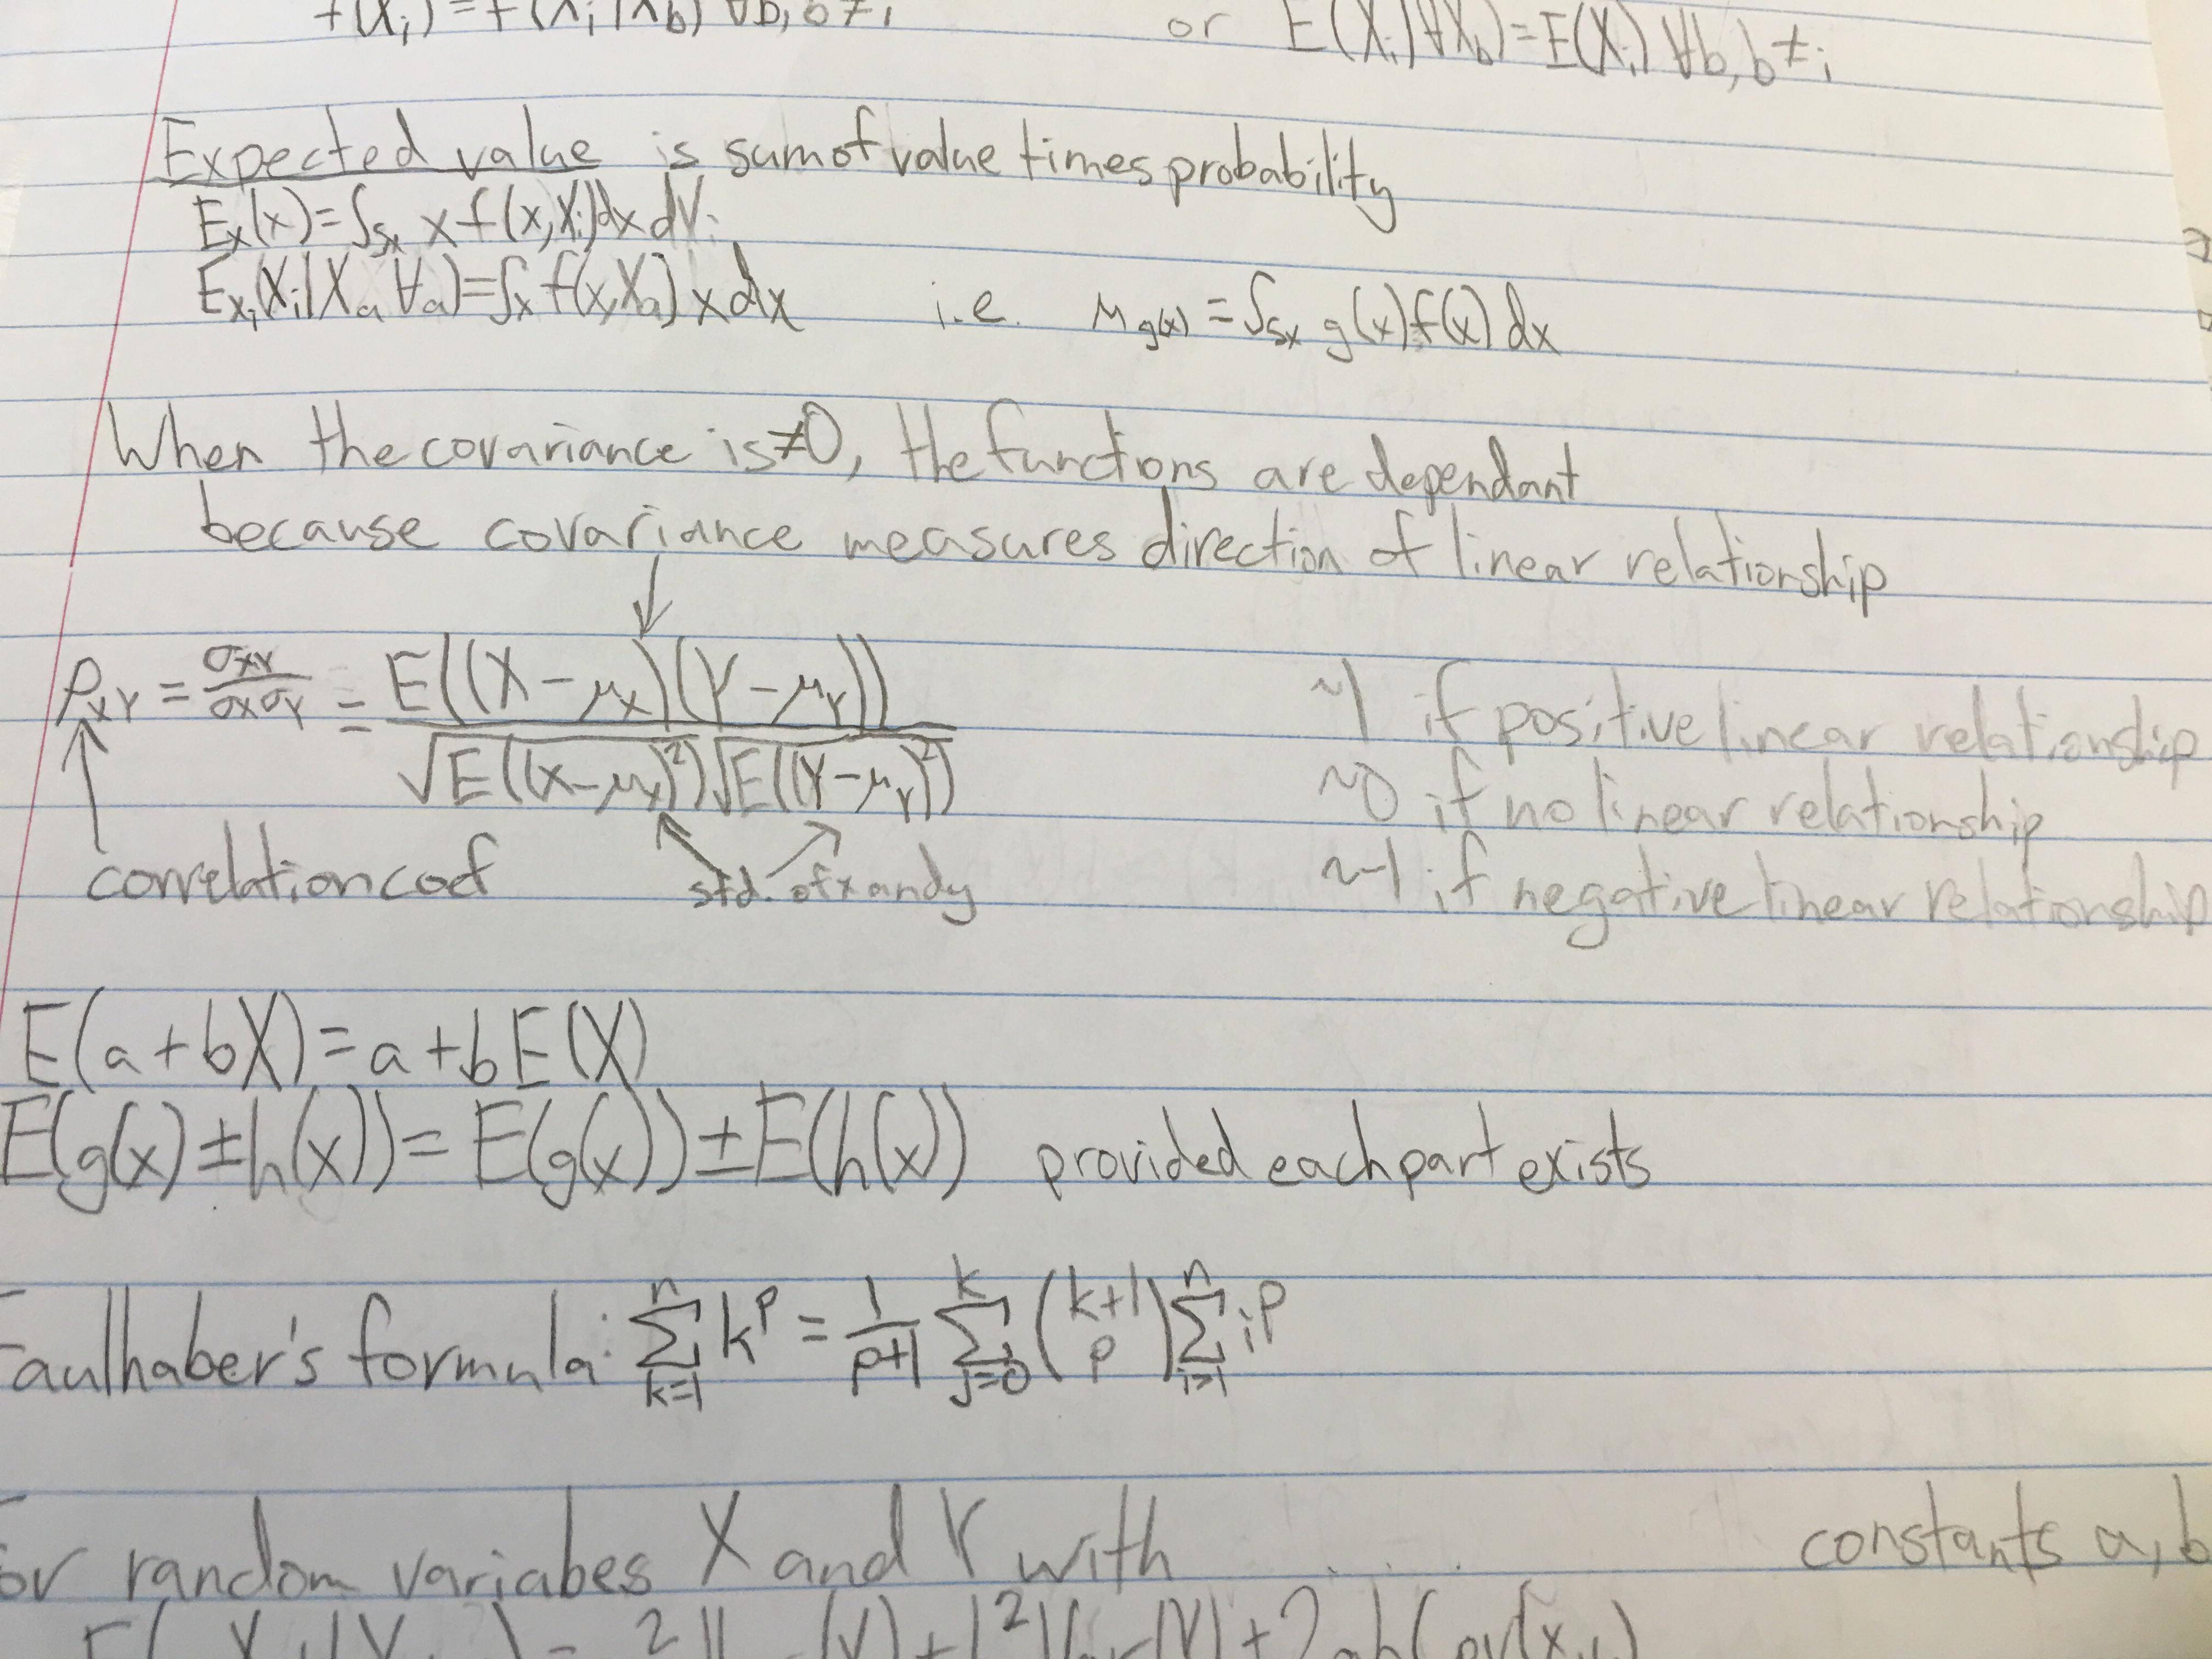 f(Xi) = f(Xi|Xb) ∀b, b≠i or E(Xi|∀Xb)=E(Xi) ∀b, b≠i
Expected value is sum of value times probability
Ex(x)=∫Sx x f(x,Xi)dx dVi
Exi(Xi|Xa ∀a)=∫x f(x,Xa) x dx i.e. μg(x) = ∫Sx g(x)f(x) dx
When the covariance is ≠0, the functions are dependant
because covariance measures direction of linear relationship
ρXY = σXY/σXσY = E((X-μX)(Y-μY))/√E((X-μX)²)√E((Y-μY)²)
~1 if positive linear relationship
~0 if no linear relationship
~-1 if negative linear relationship
correlation coef std. of x and y
E(a+bX)=a+bE(X)
E(g(x)±h(x))=E(g(x))±E(h(x)) provided each part exists
Faulhaber's formula: ∑ⁿk=1 k^p = 1/(p+1) ∑^k j=0 (k+1 p) ∑ⁿi=1 i^p
For random variabes X and Y with constants a, b